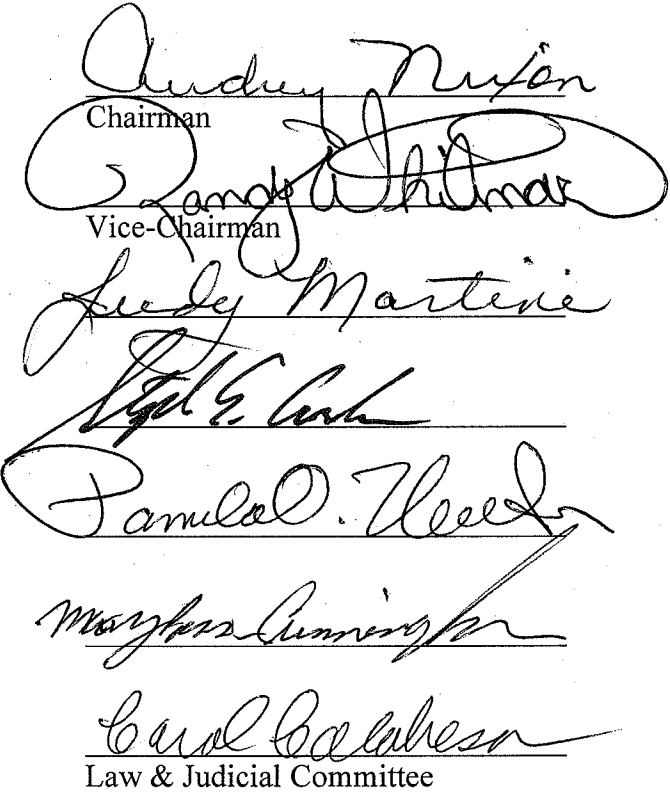 Audrey Nixon
Chairman
Randy Whitman
Vice-Chairman
Judy Martini
E.
Pamela O.
Cunningham
Carol Calabresa
Law & Judicial Committee